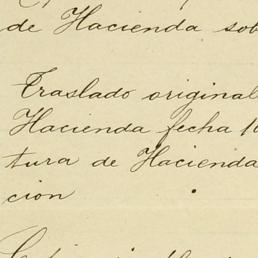 de Hacienda sob
Traslado original
Hacienda fecha 1
tura de Hacienda
cion